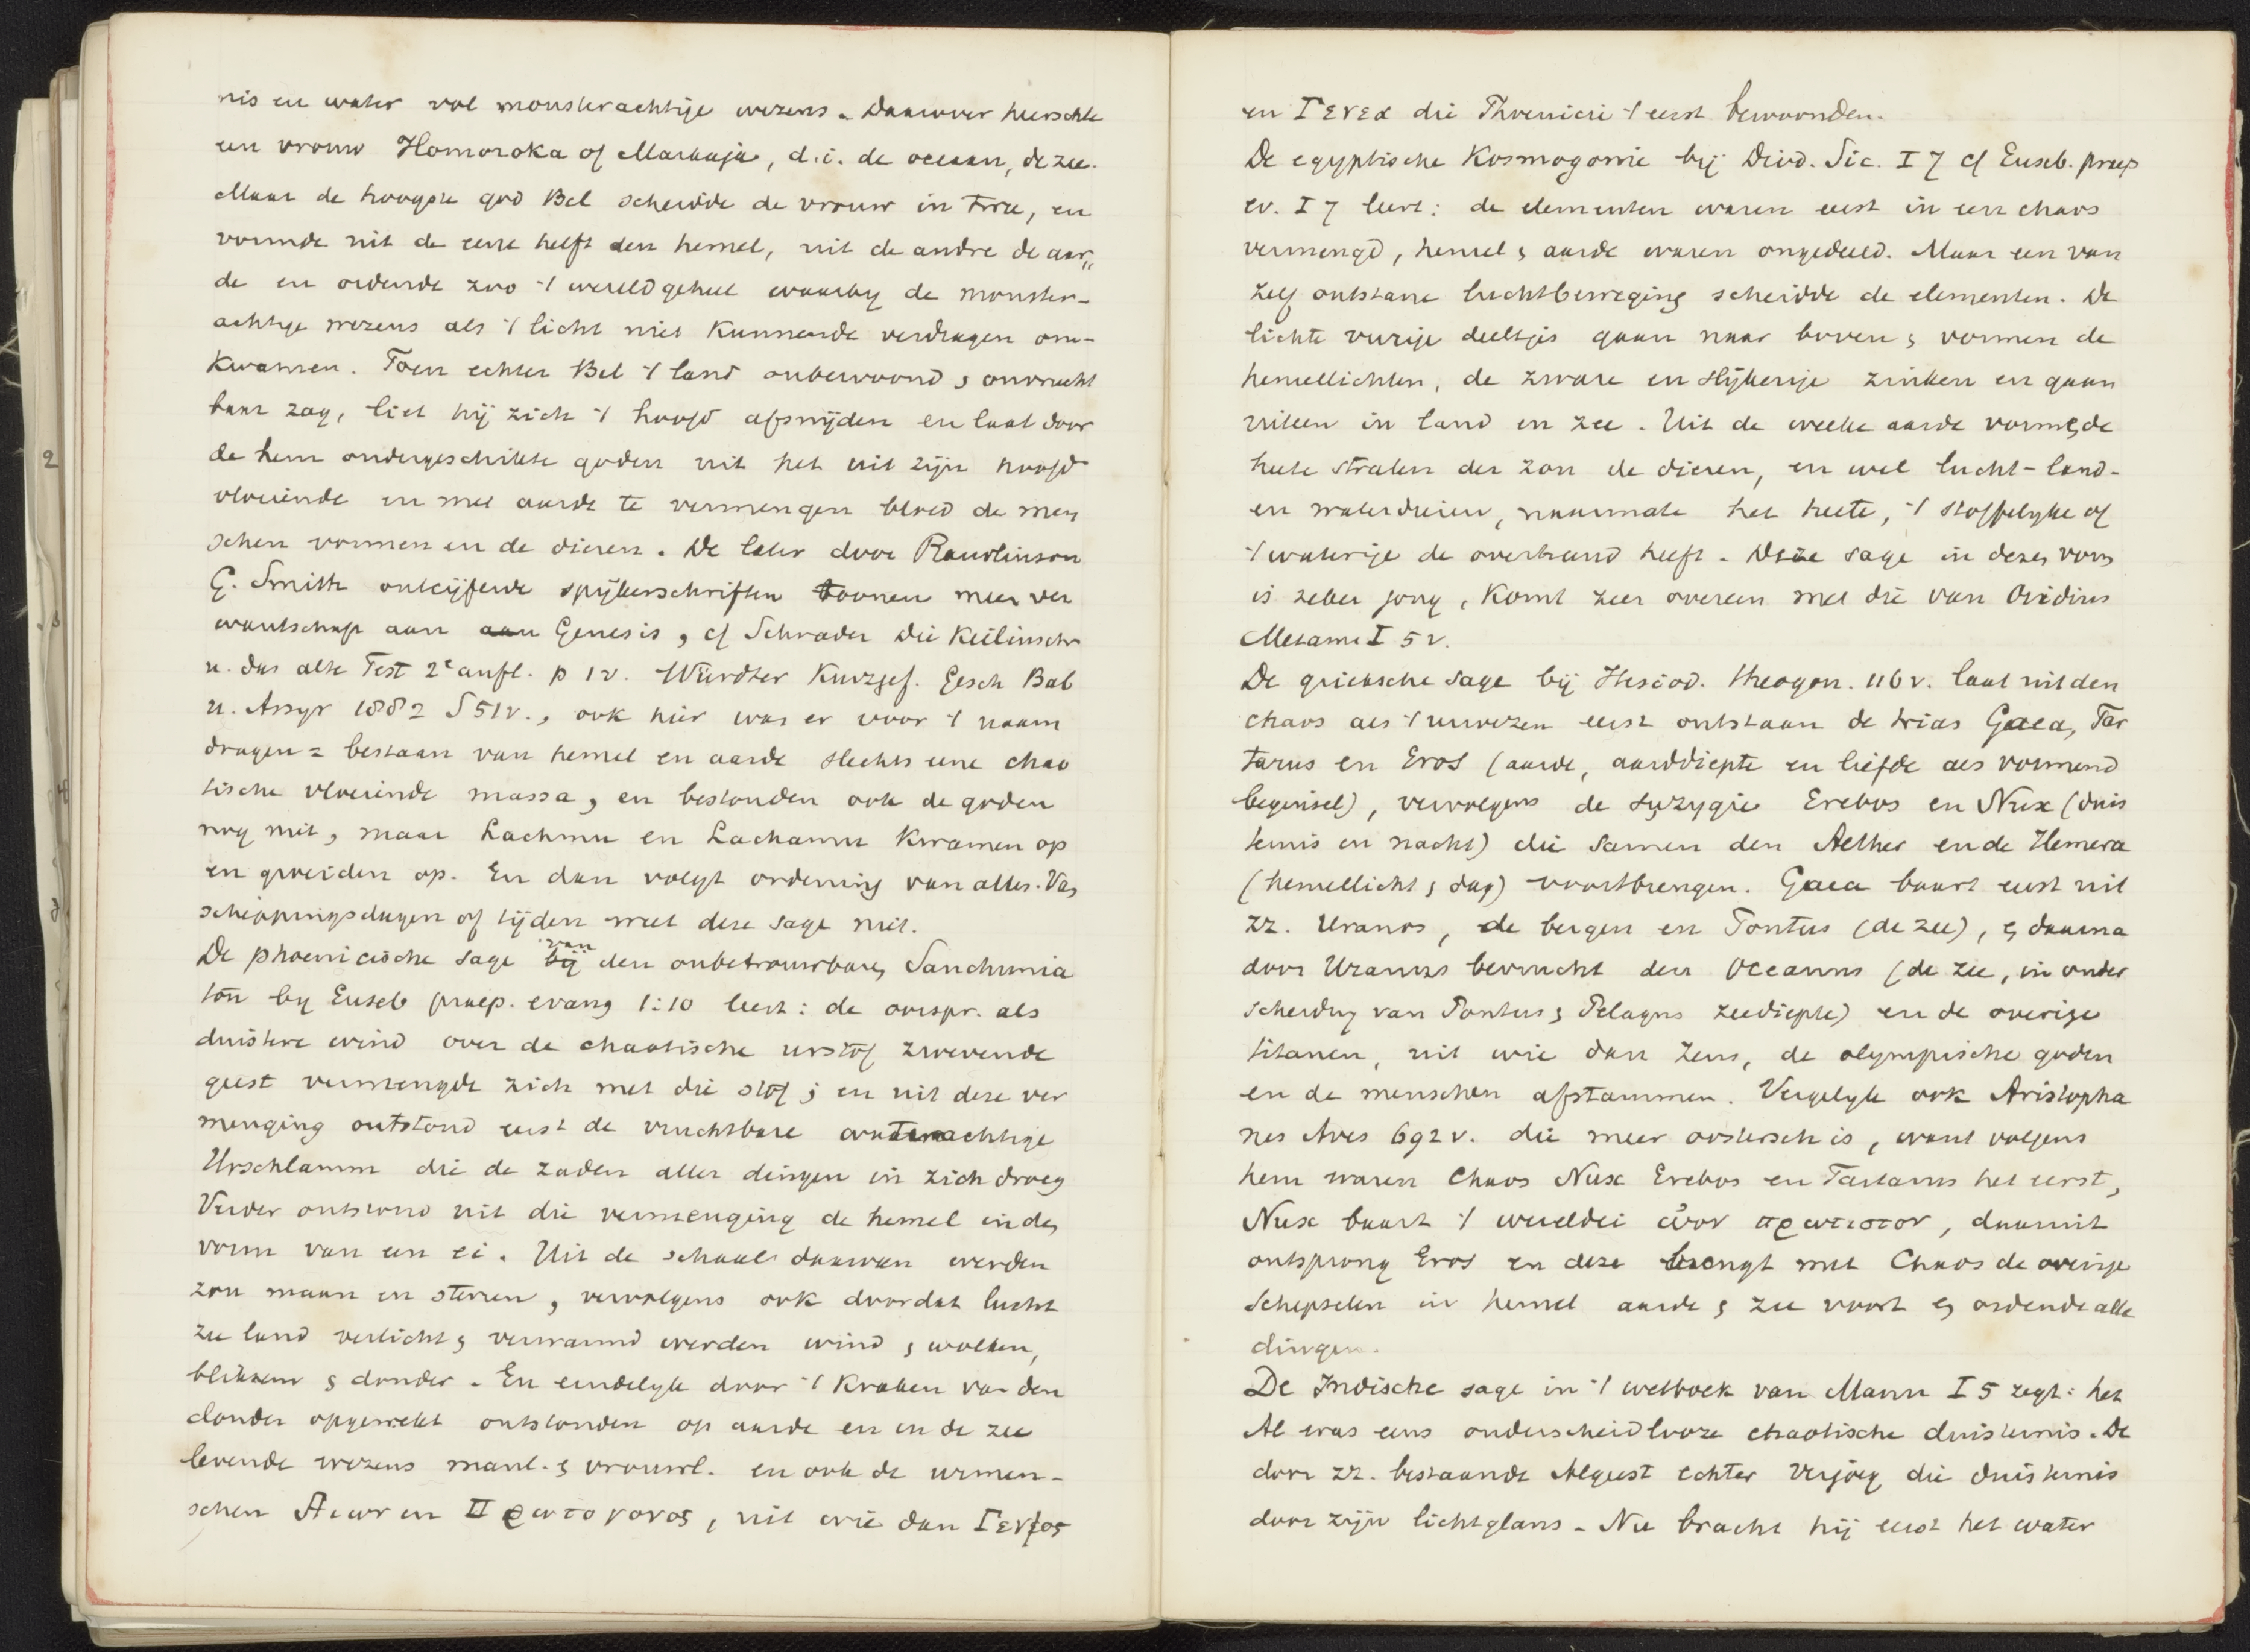 nis en water vol monsterachtige wezens. Daarover heerschte
een vrouw Homoroka of Markaja, d.i. de oceaan, de zee.
Maar de hoogste god Bel scheidde de vrouw in twee, en
vormde uit de eene helft den hemel, uit de andre de aar„
de en ordende zoo 't wereldgeheel waarby de monster-
achtige wezens als 't licht niet kunnende verdragen om-
kwamen. Toen echter Bel 't land onbewoond & onvrucht
baar zag, liet hij zich 't hoofd afsnijden en laat door
de hem ondergeschikte goden uit het uit zijn hoofd
vloeiende en met aarde te vermengen bloed de men
schen vormen en de dieren. De later door Rawlinson
G. Smith ontcijferde spijkerschriften toonen meer ver
wantschap aan aan Genesis, cf Schrader Die Keilinschr
u. das alte Test 2e aufl. p 1v. Würdter Kurzgef. Gesch Bab
u. Assyr 1882 S 51v., ook hier was er voor 't naam
dragen = bestaan van hemel en aarde slechts eene chao
tische vloeiende massa, en bestonden ook de goden
nog niet, maar Lachmu en Lachamu kwamen op
en groeiden op. En dan volgt ordening van alles. Van
scheppingsdagen of tijden weet deze sage niet.
De phoenicische sage bij van den onbetrouwbaren Sanchunia
ton by Euseb praep. evang 1:10 leert: de oorspr. als
duistere wind over de chaotische urstof zwevende
geest vermengde zich met die stof; en uit deze ver
menging ontstond eerst de vruchtbare waterachtige
Urschlamm die de zaden aller dingen in zich droeg
Verder ontstond uit die vermenging de hemel in den
vorm van een ei. Uit de schaal daarvan werden
zon maan en sterren, vervolgens ook doordat lucht
zee land verlicht & verwarmd werden wind & wolken,
bliksem & donder. En eindelyk door 't kraken van den
donder opgewekt ontstonden op aarde en in de zee
levende wezens manl. & vrouwl. en ook de urmen-
schen Αιων en Πρωτογονος, uit wie dan Γενος
en Γενεα die Phoenicie 't eerst bewoonden.
De egyptische Kosmogonie bij Diod. Sic. I 7 cf Euseb. praep
ev. I 7 leert: de elementen waren eest in een chaos
vermengd, hemel & aarde waren ongedeeld. Maar een van
zelf ontstane luchtbeweging scheidde de elementen. De
lichte vurige deeltjes gaan naar boven & vormen de
hemellichten, de zware en slijkerige zinken en gaan
uiteen in land en zee. Uit de weeke aarde vormen de
heete stralen der zon de dieren, en wel lucht- land-
en waterdieren, naarmate het heete, 't stoffelyke of
't waterige de overhand heeft. Deze sage in dezen vorm
is zeker jong, komt zeer overeen met die van Ovidius
Metam I 5 v.
De grieksche sage bij Hesiod. theogon. 116 v. laat uit den
chaos als 't urwezen eerst ontstaan de trias Gaea, Tar
tarus en Eros (aarde, aarddiepte en liefde als vormend
beginsel), vervolgens de syzygie Erebos en Nux (duis
ternis en nacht) die samen den Aether en de Hemera
(hemellicht & dag) voortbrengen. Gaea baart eerst uit
zz. Uranos, de bergen en Pontus (de zee), & daarna
door Uranos bevrucht den Oceanus (de zee, in onder
scheiding van Pontus & Pelagus zeediepte) en de overige
titanen, uit wie dan Zeus, de olympische goden
en de menschen afstammen. Vergelyk ook Aristopha
nes Aves 692 v. die meer oostersch is, want volgens
hem waren Chaos Nux Erebos en Tartarus het eerst,
Nux baart 't wereldei ωον πρωτιστον, daaruit
ontsprong Eros en deze brengt met Chaos de overige
Schepselen in hemel aarde & zee voort & ordende alle
dingen.
De Indische sage in 't wetboek van Manu I 5 zegt: het
Al was eens onderscheidlooze chaotische duisternis. De
door zz. bestaande Algeest echter verjoeg die duisternis
door zijn lichtglans. Nu bracht hij eerst het water